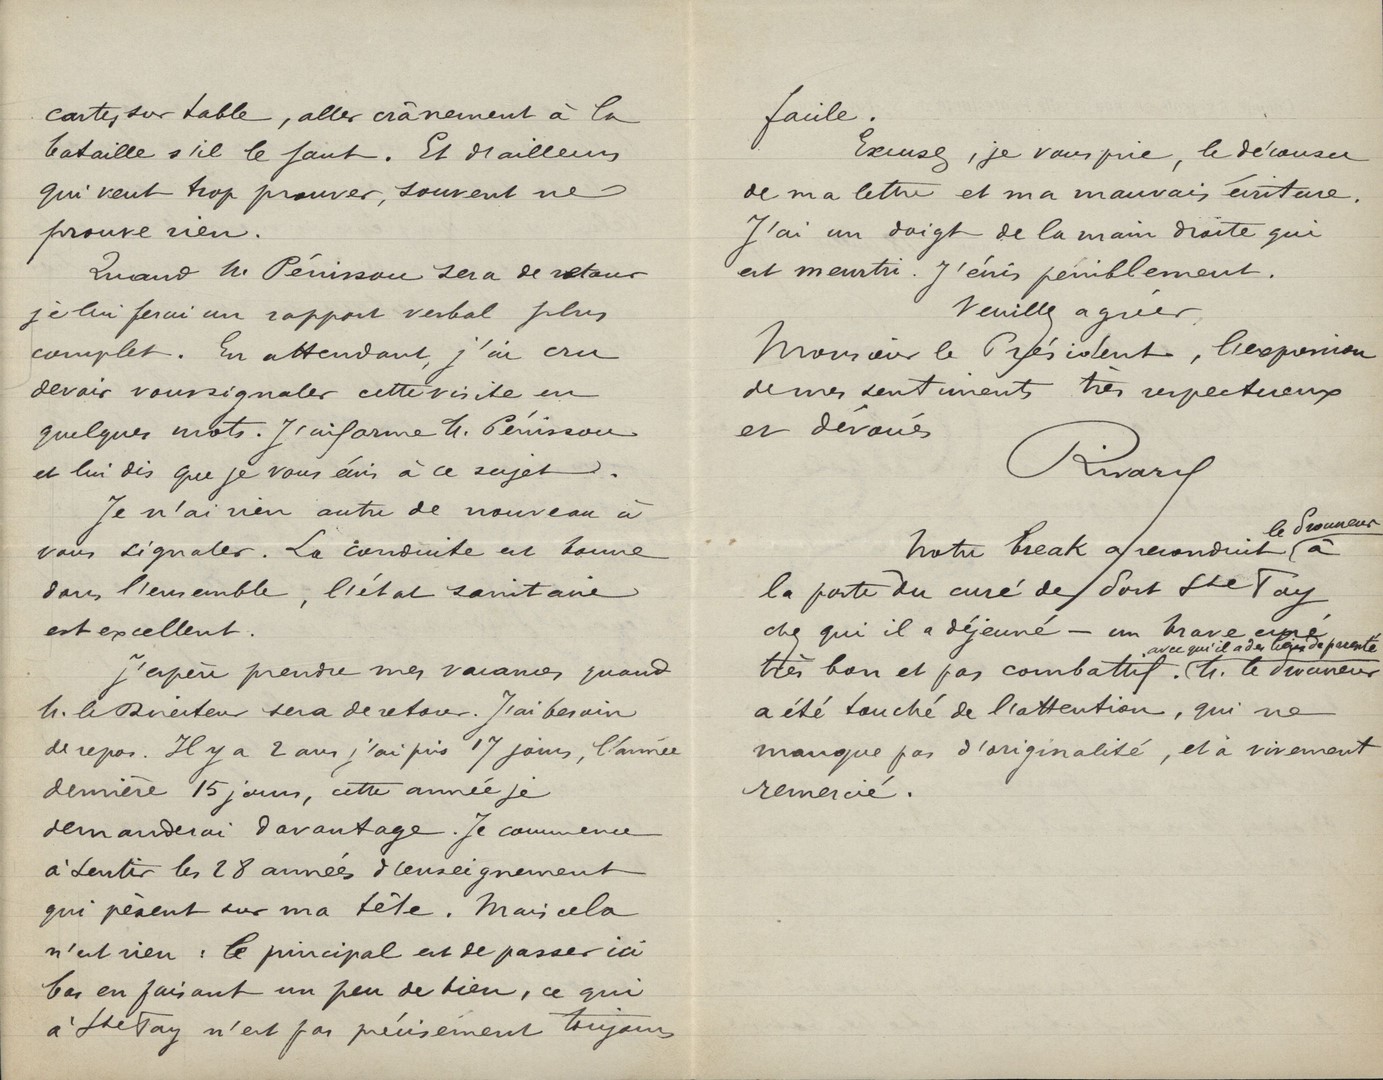 cartes sur table, aller crânement à la
bataille s'il le faut. Et d'ailleurs
qui veut trop prouver, souvent ne
prouve rien.
Quand M. Pénissou sera de retour
je lui ferai un rapport verbal plus
complet. En attendant, j'ai cru
devoir vous signaler cette visite en
quelques mots. J'informe M. Pénissou
et lui dis que je vous écris à ce sujet.
Je n'ai rien autre de nouveau à
vous signaler. La conduite est bonne
dans l'ensemble, l'état sanitaire
est excellent.
J'espère prendre mes vacances quand
M. le Directeur sera de retour. J'ai besoin
de repos. Il y a 2 ans j'ai pris 17 jours, l'année
dernière 15 jours, cette année je
demanderai davantage. Je commence
à sentir les 28 années d'enseignement
qui pèsent sur ma tête. Mais cela
n'est rien : le principal est de passer ici
bas en faisant un peu de bien, ce qui
à Ste Foy n'est pas précisément toujours
facile.
Excusez, je vous prie, le décousu
de ma lettre et ma mauvais écriture.
J'ai un doigt de la main droite qui
est meurtri. J'écris péniblement.
Veuillez agréer,
Monsieur le Président, l'expression
de mes sentiments très respectueux
et dévoués
Rivary
Notre break a reconduit le Provenceur à
la porte du curé de Port Ste Foy
chez qui il a déjeuné — un brave curé
très bon et pas combattif. avec qui il a des liens de parenté
M. le
a été touché de l'attention, qui ne
manque pas d'originalité, et a vivement
remercié.